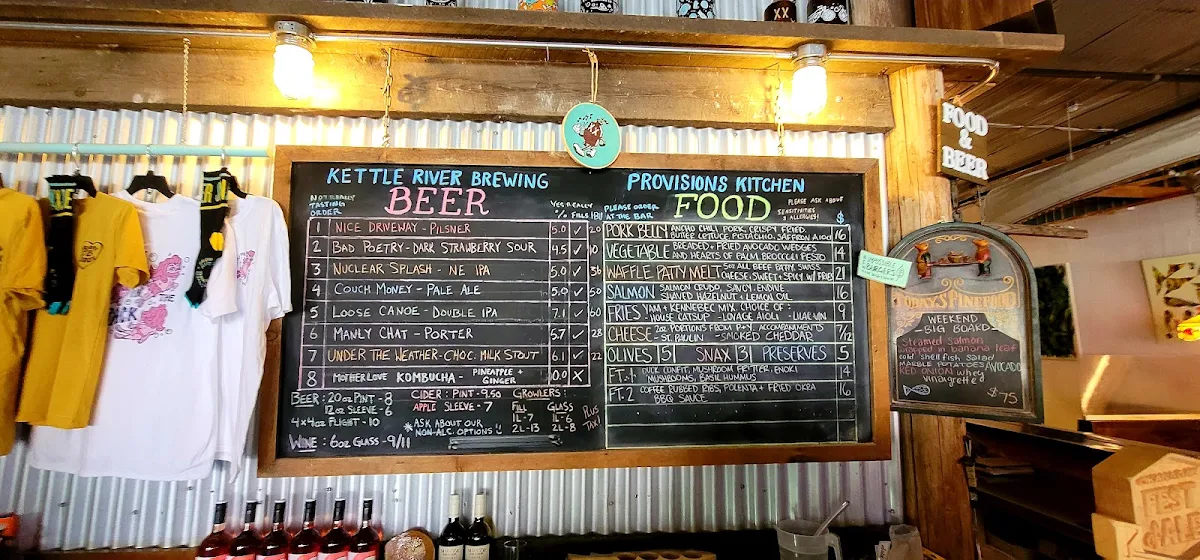 KETTLE RIVER BREWING
BEER
NOT REALLY
TASTING
ORDER
YES REALLY
% FILLS IBU
1 NICE DRIVEWAY - PILSNER 5.0 ✓ 20
2 BAD POETRY - DARK STRAWBERRY SOUR 4.5 ✓ 10
3 NUCLEAR SPLASH - NE IPA 5.0 ✓ 36
4 COUCH MONEY - PALE ALE 5.0 ✓ 50
5 LOOSE CANOE - DOUBLE IPA 7.1 ✓ 60
6 MANLY CHAT - PORTER 5.7 ✓ 28
7 UNDER THE WEATHER - CHOC. MILK STOUT 6.1 ✓ 22
8 MOTHERLOVE KOMBUCHA - PINEAPPLE + GINGER 0.0 X
BEER: 20oz PINT - 8
12oz SLEEVE - 6
4x4oz FLIGHT - 10
WINE: 6oz GLASS - 9/11
CIDER: PINT - 9.50
APPLE SLEEVE - 7
*ASK ABOUT OUR
NON-ALC. OPTIONS
GROWLERS:
FILL GLASS
1L-7 1L-6
2L-13 2L-8
PLUS
TAX!
PROVISIONS KITCHEN
PLEASE ORDER
AT THE BAR
FOOD
PLEASE ASK ABOUT
SENSITIVITIES
& ALLERGIES!
$
PORK BELLY ANCHO CHILI PORK, CRISPY FRIED,
BUTTER LETTUCE, PISTACHIO, SAFFRON AIOLI 16
VEGETABLE BREADED + FRIED AVOCADO WEDGES
AND HEARTS OF PALM, BROCCOLI PESTO 14
WAFFLE PATTY MELT 5oz ALL BEEF PATTY, SWISS
CHEESE, SWEET + SPICY, W/ FRIES 21
SALMON SALMON CRUDO, SAVOY, ENDIVE
SHAVED HAZELNUT + LEMON OIL 16
FRIES YAM + KENNEBEC MIX. CHOICE OF:
- HOUSE CATSUP - LOVAGE AIOLI - LILAC VIN 9
CHEESE 2oz PORTIONS FROM P+Y, ACCOMPANIMENTS
- ST. PAULIN - SMOKED CHEDDAR 7/12
OLIVES |5| SNAX |3| PRESERVES 5
FT. 1 DUCK CONFIT, MUSHROOM FRITTER, ENOKI
MUSHROOMS, BASIL HUMMUS 14
FT. 2 COFFEE RUBBED RIBS, POLENTA + FRIED OKRA
BBQ SAUCE 16
FOOD
&
BEER
BURGERS
TODAY'S FINE FOOD
WEEKEND
- BIG BOARD -
Steamed salmon
wrapped in banana leaf
cold shellfish salad
MARBLE POTATOES AVOCADO
RED ONION whey
vinaigrette
$75
XX
THE